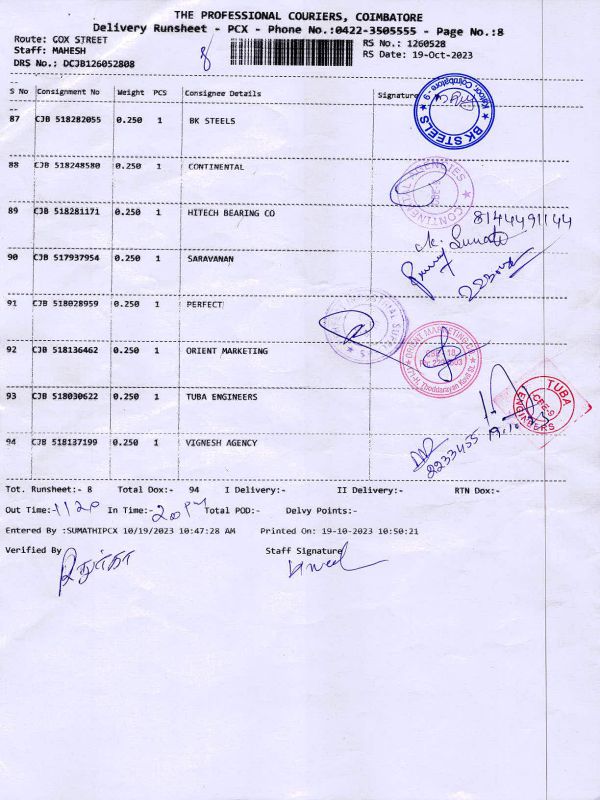 THE PROFESSIONAL COURIERS, COIMBATORE
Delivery Runsheet - PCX - Phone No.:0422-3505555 - Page No.:8
Route: COX STREET RS No.: 1260528
Staff: MAHESH RS Date: 19-Oct-2023
DRS No.: DCJB126052808
S No Consignment No Weight PCS Consignee Details Signature
87 CJB 518282055 0.250 1 BK STEELS
BK STEELS
88 CJB 518248580 0.250 1 CONTINENTAL
CONTINENTAL AGENCIES
89 CJB 518281171 0.250 1 HITECH BEARING CO
8144491144
90 CJB 517937954 0.250 1 SARAVANAN
91 CJB 518028959 0.250 1 PERFECT
92 CJB 518136462 0.250 1 ORIENT MARKETING
ORIENT MARKETING
93 CJB 518030622 0.250 1 TUBA ENGINEERS
TUBA ENGINEERS
94 CJB 518137199 0.250 1 VIGNESH AGENCY
2233455
Tot. Runsheet:- 8 Total Dox:- 94 I Delivery:- II Delivery:- RTN Dox:-
Out Time:- 1120 In Time:- 2.00 pm Total POD:- Delvy Points:-
Entered By :SUMATHIPCX 10/19/2023 10:47:28 AM Printed On: 19-10-2023 10:50:21
Verified By Staff Signature